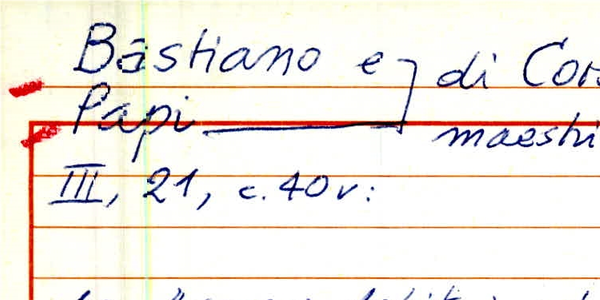 Bastiano e di
Papi maestri
III, 21, c. 40v: